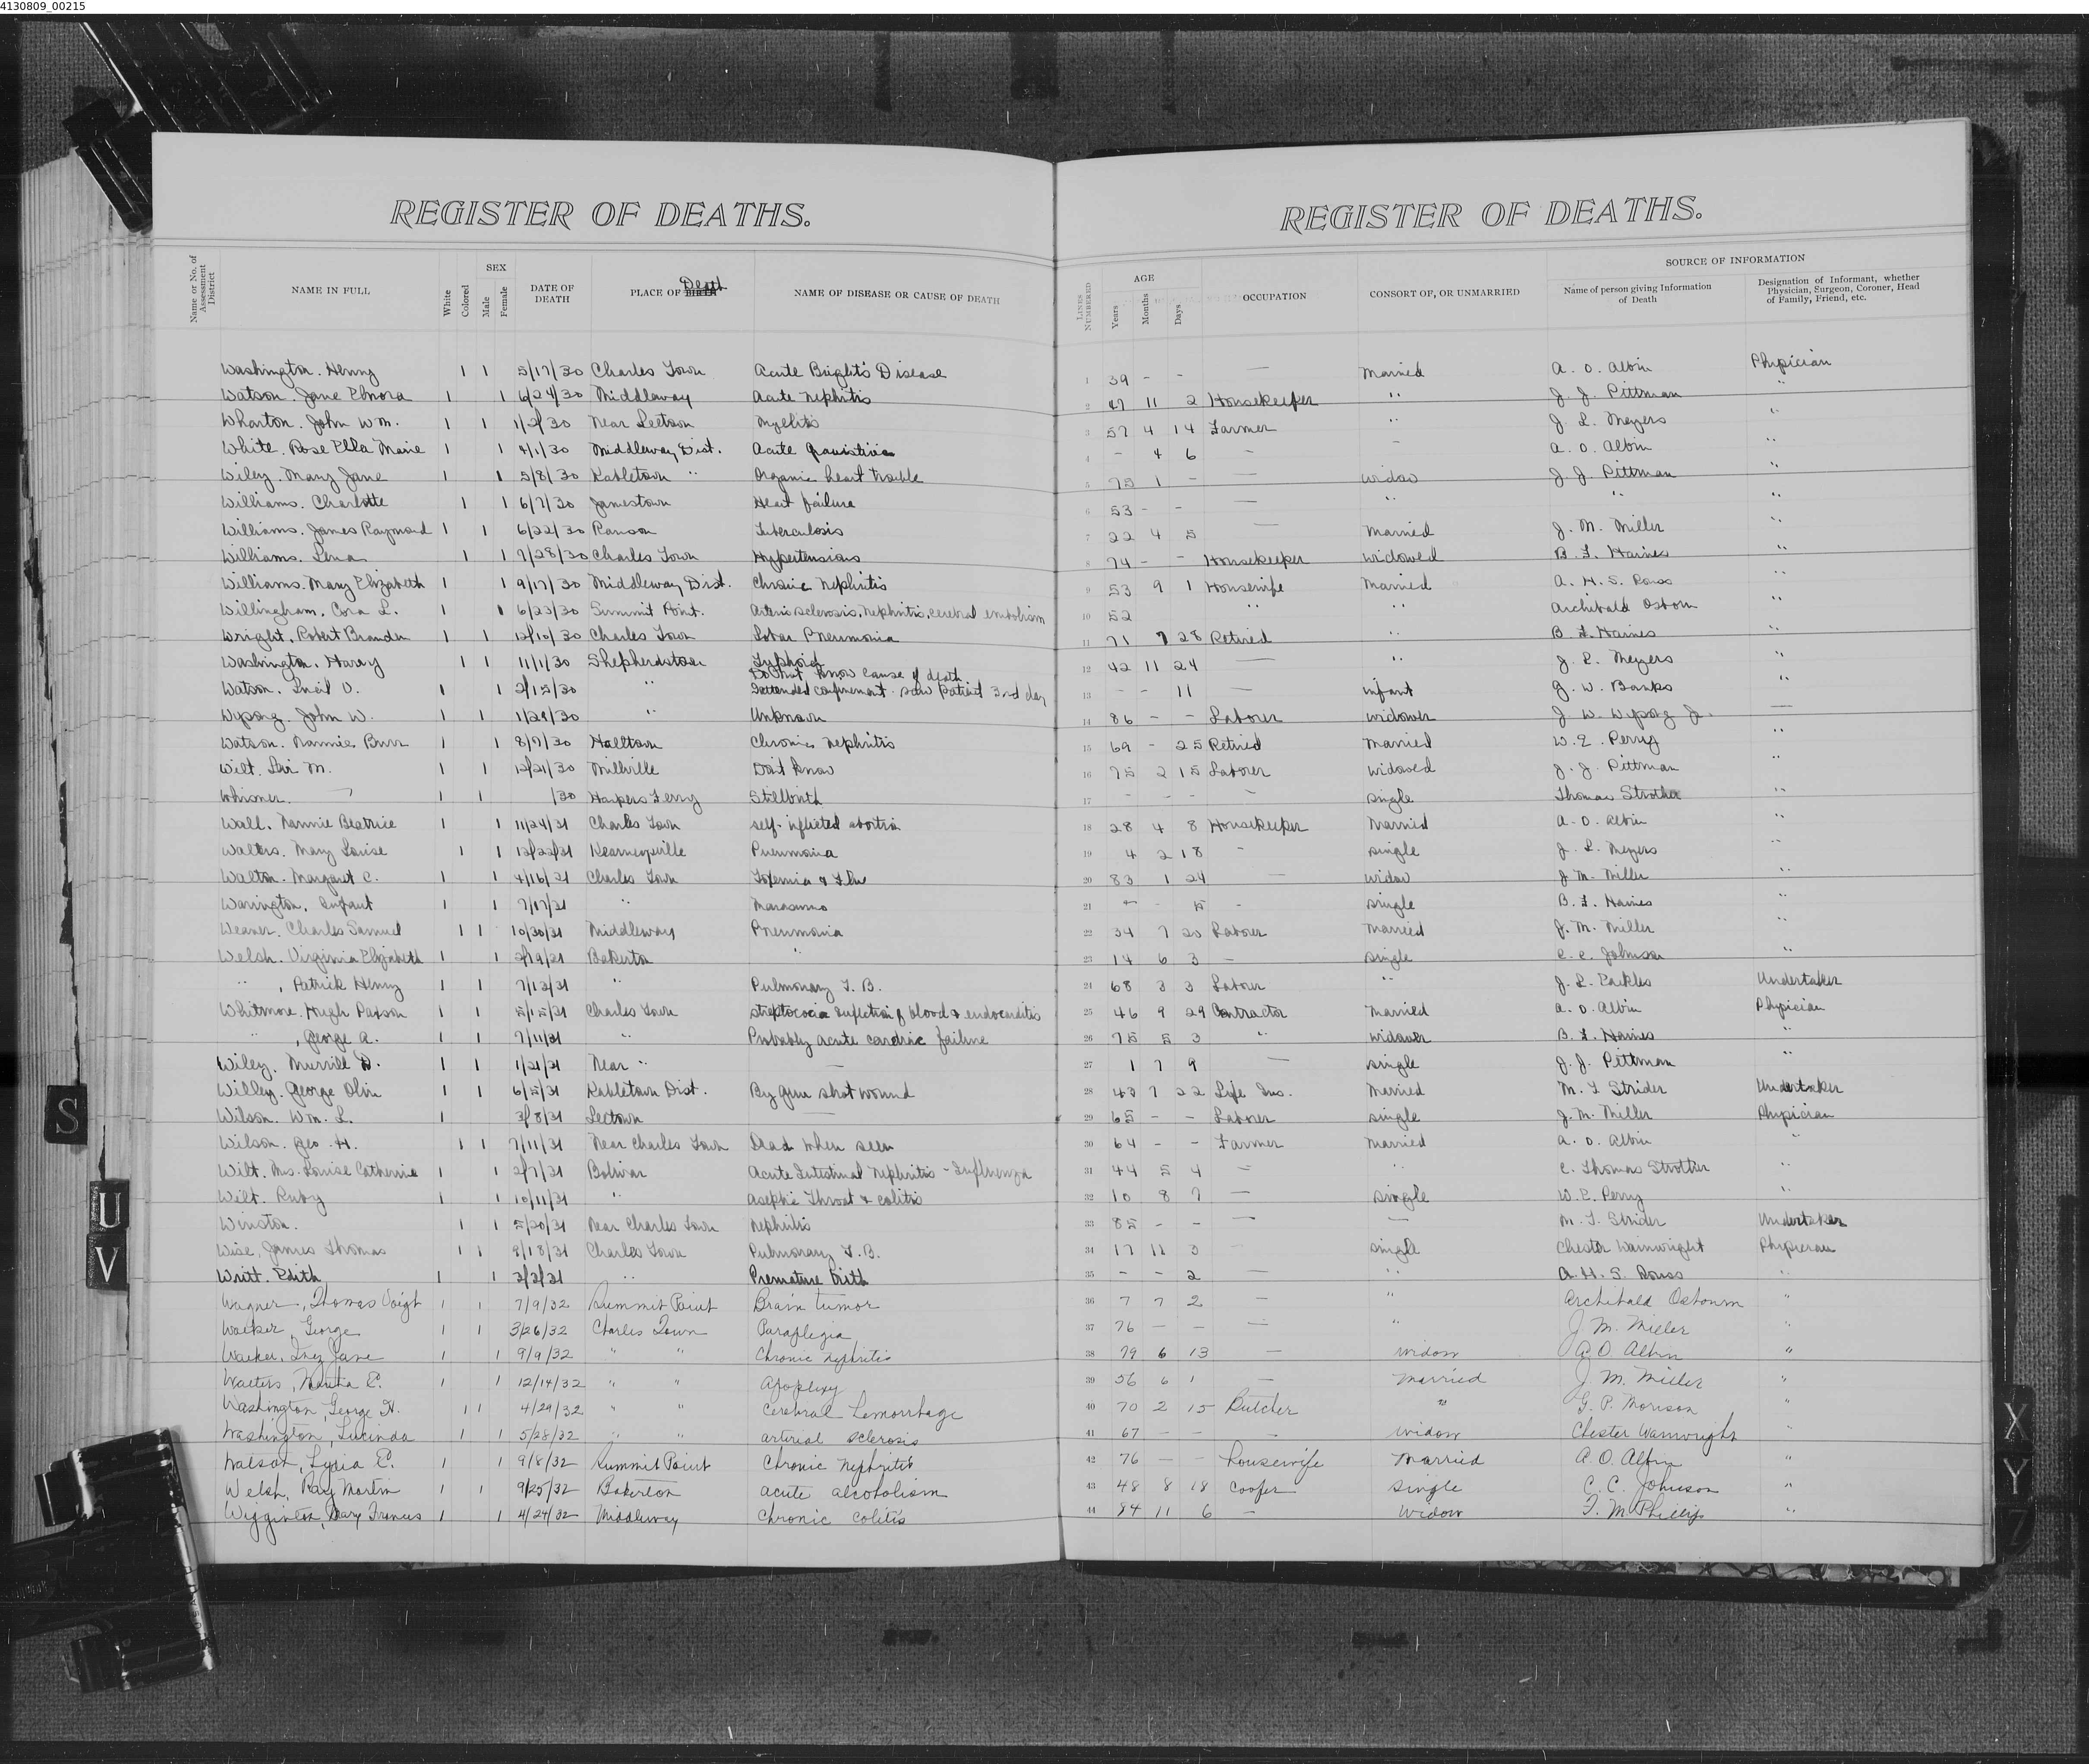 4130809_00215
REGISTER OF DEATHS.
Name or No. of Assessment District
NAME IN FULL
White
Colored
SEX
Male
Female
DATE OF DEATH
PLACE OF BIRTH Death
NAME OF DISEASE OR CAUSE OF DEATH
Washington. Henry 1 1 5/17/30 Charles Town Acute Bright's Disease
Watson. Jane Elnora 1 1 6/24/30 Middleway Acute Nephritis
Wharton. John Wm. 1 1 1/2/30 Near Leetown Myelitis
White. Rose Ella Marie 1 1 4/1/30 Middleway Dist. Acute
Wiley. Mary Jane 1 1 5/8/30 Kabletown " Organic heart trouble
Williams. Charlotte 1 1 6/7/30 Jamestown Heart failure
Williams. James Raymond 1 1 6/22/30 Ranson Tuberculosis
Williams. Lena 1 1 7/28/30 Charles Town Hypertension
Williams. Mary Elizabeth 1 1 9/17/30 Middleway Dist. Chronic Nephritis
Willingham. Cora L. 1 1 6/23/30 Summit Point. Arterio sclerosis, Nephritis, cerebral embolism
Wright. Robert Brander 1 1 12/10/30 Charles Town Lobar Pneumonia
Washington. Harry 1 1 11/1/30 Shepherdstown Typhoid
Watson. V. 1 1 2/15/30 " Do not know cause of death
I attended confinement - saw patient 3rd day
Wysong. John W. 1 1 1/29/30 " Unknown
Watson. Nannie Burr 1 1 8/7/30 Halltown Chronic Nephritis
Wilt. M. 1 1 12/21/30 Millville Don't know
Whisner. — 1 1 /30 Harpers Ferry Stillbirth
Wall. Nannie Beatrice 1 1 11/24/31 Charles Town self-inflicted abortion
Walters. Mary Louise 1 1 12/22/31 Kearneysville Pneumonia
Walton. Margaret C. 1 1 4/16/31 Charles Town Toxemia & Flu
Warington. Infant 1 1 7/17/31 " Marasmus
Weaver. Charles Samuel 1 1 10/30/31 Middleway Pneumonia
Welsh. Virginia Elizabeth 1 1 2/19/31 Bakerton "
" , Patrick Henry 1 1 7/13/31 " Pulmonary T. B.
Whitmore. Hugh Paxson 1 1 5/15/31 Charles Town Streptococia infection of blood & endocarditis
" , George A. 1 1 7/11/31 " Probably acute cardiac failure
Wiley. Murrill D. 1 1 1/21/31 Near " —
Willey. George Olin 1 1 6/5/31 Kabletown Dist. By gun shot wound
Wilson. Wm. L. 1 3/8/31 Leetown —
Wilson. Geo. H. 1 1 7/11/31 Near Charles Town Dead when seen
Wilt. Mrs. Louise Catherine 1 1 2/7/31 Bolivar Acute Intestinal Nephritis - Influenza
Wilt. Ruby 1 1 10/11/31 " Aseptic Throat & colitis
Winston. 1 1 5/20/31 Near Charles Town Nephritis
Wise, James Thomas 1 1 9/18/31 Charles Town Pulmonary T.B.
Writt. Edith 1 1 2/2/31 " Premature birth
Wagner, Thomas Voigt 1 1 7/9/32 Summit Point Brain tumor
Walker, George 1 1 3/26/32 Charles Town Paraplegia
Walker, Inez Jane 1 1 9/9/32 " " Chronic Nephritis
Walters, Martha E. 1 1 12/14/32 " " Apoplexy
Washington, George N. 1 1 4/29/32 " " Cerebral hemorrhage
Washington, Lucinda 1 1 5/28/32 " " arterial sclerosis
Watson, Lydia E. 1 1 9/8/32 Summit Point Chronic Nephritis
Welsh, Ray Martin 1 1 9/25/32 Bakerton acute alcoholism
Wigginton, Mary Frances 1 1 4/24/32 Middleway Chronic Colitis
REGISTER OF DEATHS.
LINES NUMBERED
AGE
Years
Months
Days
OCCUPATION
CONSORT OF, OR UNMARRIED
SOURCE OF INFORMATION
Name of person giving Information of Death
Designation of Informant, whether Physician, Surgeon, Coroner, Head of Family, Friend, etc.
1 39 - - — Married A. O. Albin Physician
2 47 11 2 Housekeeper " J. J. Pittman "
3 57 4 14 Farmer " J. L. Meyers "
4 - 4 6 - - A. O. Albin
5 75 1 - — widow J. J. Pittman "
6 53 - - — " " "
7 22 4 5 — Married J. M. Miller "
8 74 - - Housekeeper widowed B. F. Haines "
9 53 9 1 Housewife Married A. H. S. Rouss "
10 52 " " Archibald Osborn "
11 71 7 28 Retired " B. F. Haines "
12 42 11 24 — " J. L. Meyers "
13 - - 11 — infant G. W. Banks "
14 86 - - Laborer widower J. W. Wysong Jr. —
15 69 - 25 Retired Married W. E. Perry "
16 75 2 15 Laborer widowed J. J. Pittman "
17 - - - - single Thomas Strother "
18 28 4 8 Housekeeper Married A. O. Albin "
19 4 2 18 - single J. L. Meyers "
20 83 1 24 — widow J. M. Miller "
21 - - 5 - single B. F. Haines "
22 34 7 20 Laborer Married J. M. Miller "
23 14 6 3 — single C. C. Johnson "
24 68 3 3 Laborer " J. L. Eackles Undertaker
25 46 9 29 Contractor Married A. O. Albin Physician
26 75 5 3 " widower B. F. Haines "
27 1 7 9 — single J. J. Pittman "
28 43 7 22 Life Ins. Married M. T. Strider Undertaker
29 65 - - Laborer single J. M. Miller Physician
30 64 - - Farmer Married A. O. Albin "
31 44 5 4 — " C. Thomas Strother "
32 10 8 7 — single W. E. Perry "
33 85 - - — — M. T. Strider Undertaker
34 17 11 3 - single Chester Wainwright Physician
35 - - 2 — " A. H. S. Rouss "
36 7 7 2 — " Archibald Osbourn "
37 76 — — — " J. M. Miller "
38 79 6 13 — widow A. O. Albin "
39 56 6 1 — Married J. M. Miller "
40 70 2 15 Butcher " G. P. Morison "
41 67 — — — widow Chester Wainwright "
42 76 — — housewife Married A. O. Albin "
43 48 8 18 Cooper single C. C. Johnson "
44 84 11 6 — widow F. M. Phillips "
S
U
V
X
Y
Z